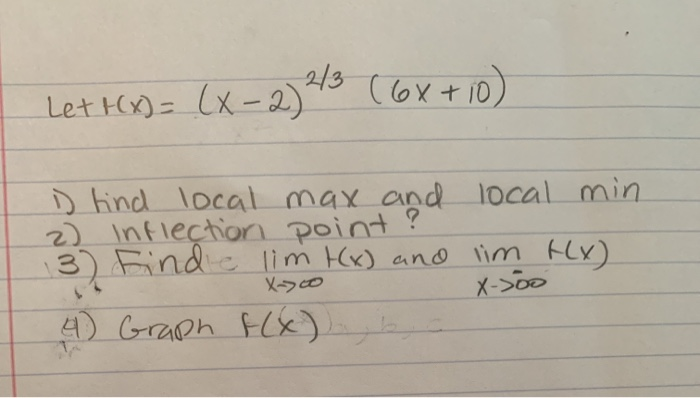 Let f(x) = (x-2)^{2/3} (6x+10)
1) find local max and local min
2) inflection point?
3) Find lim f(x) and lim f(x)
x->∞ x->-∞
4) Graph f(x)